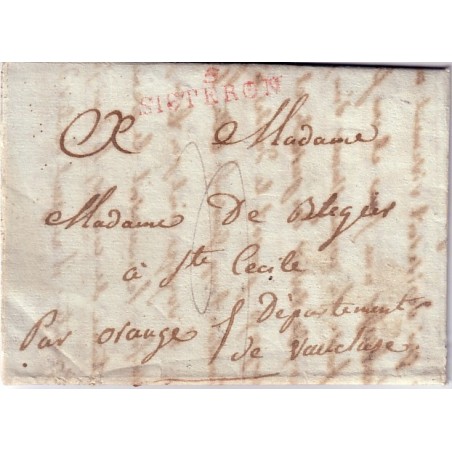 5
SISTERON
A Madame
Madame De Blegier
à Ste Cecile
Département
Par orange de vaucluse